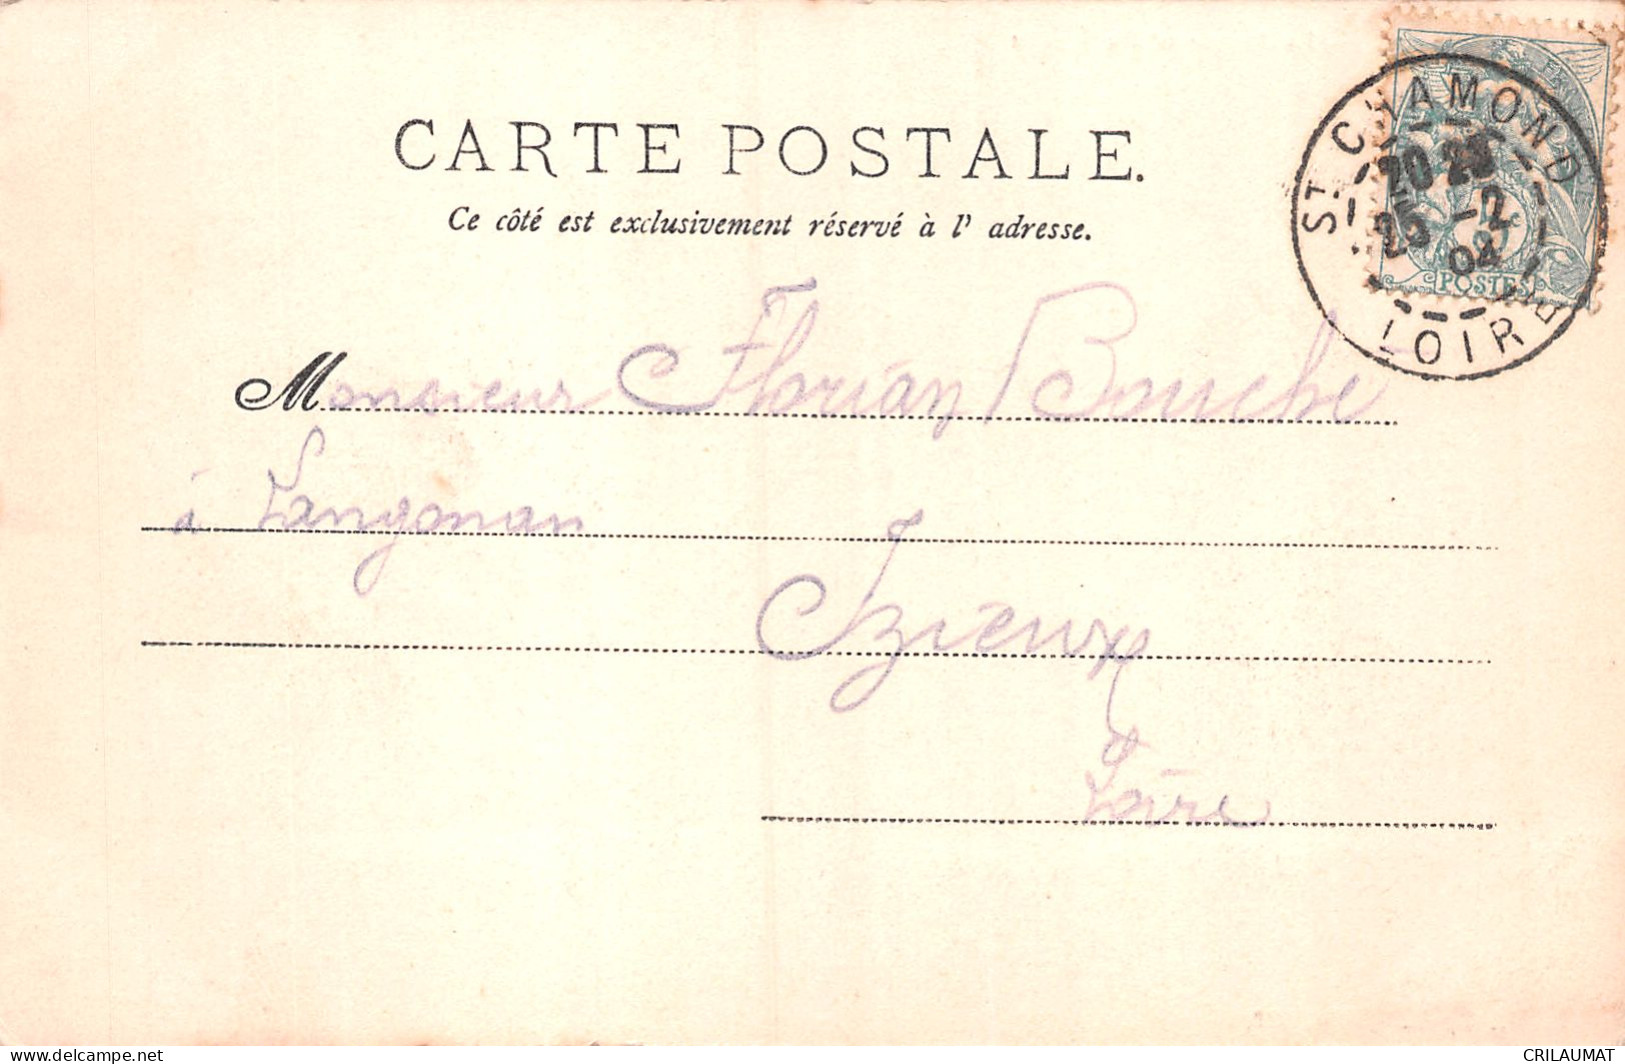 CARTE POSTALE.
Ce côté est exclusivement réservé à l' adresse.
ST CHAMOND
25 -2
04
LOIRE
POSTES
Monsieur Florian Bouche
à Langonan
Izieux
Loire
www.delcampe.net
CRILAUMAT